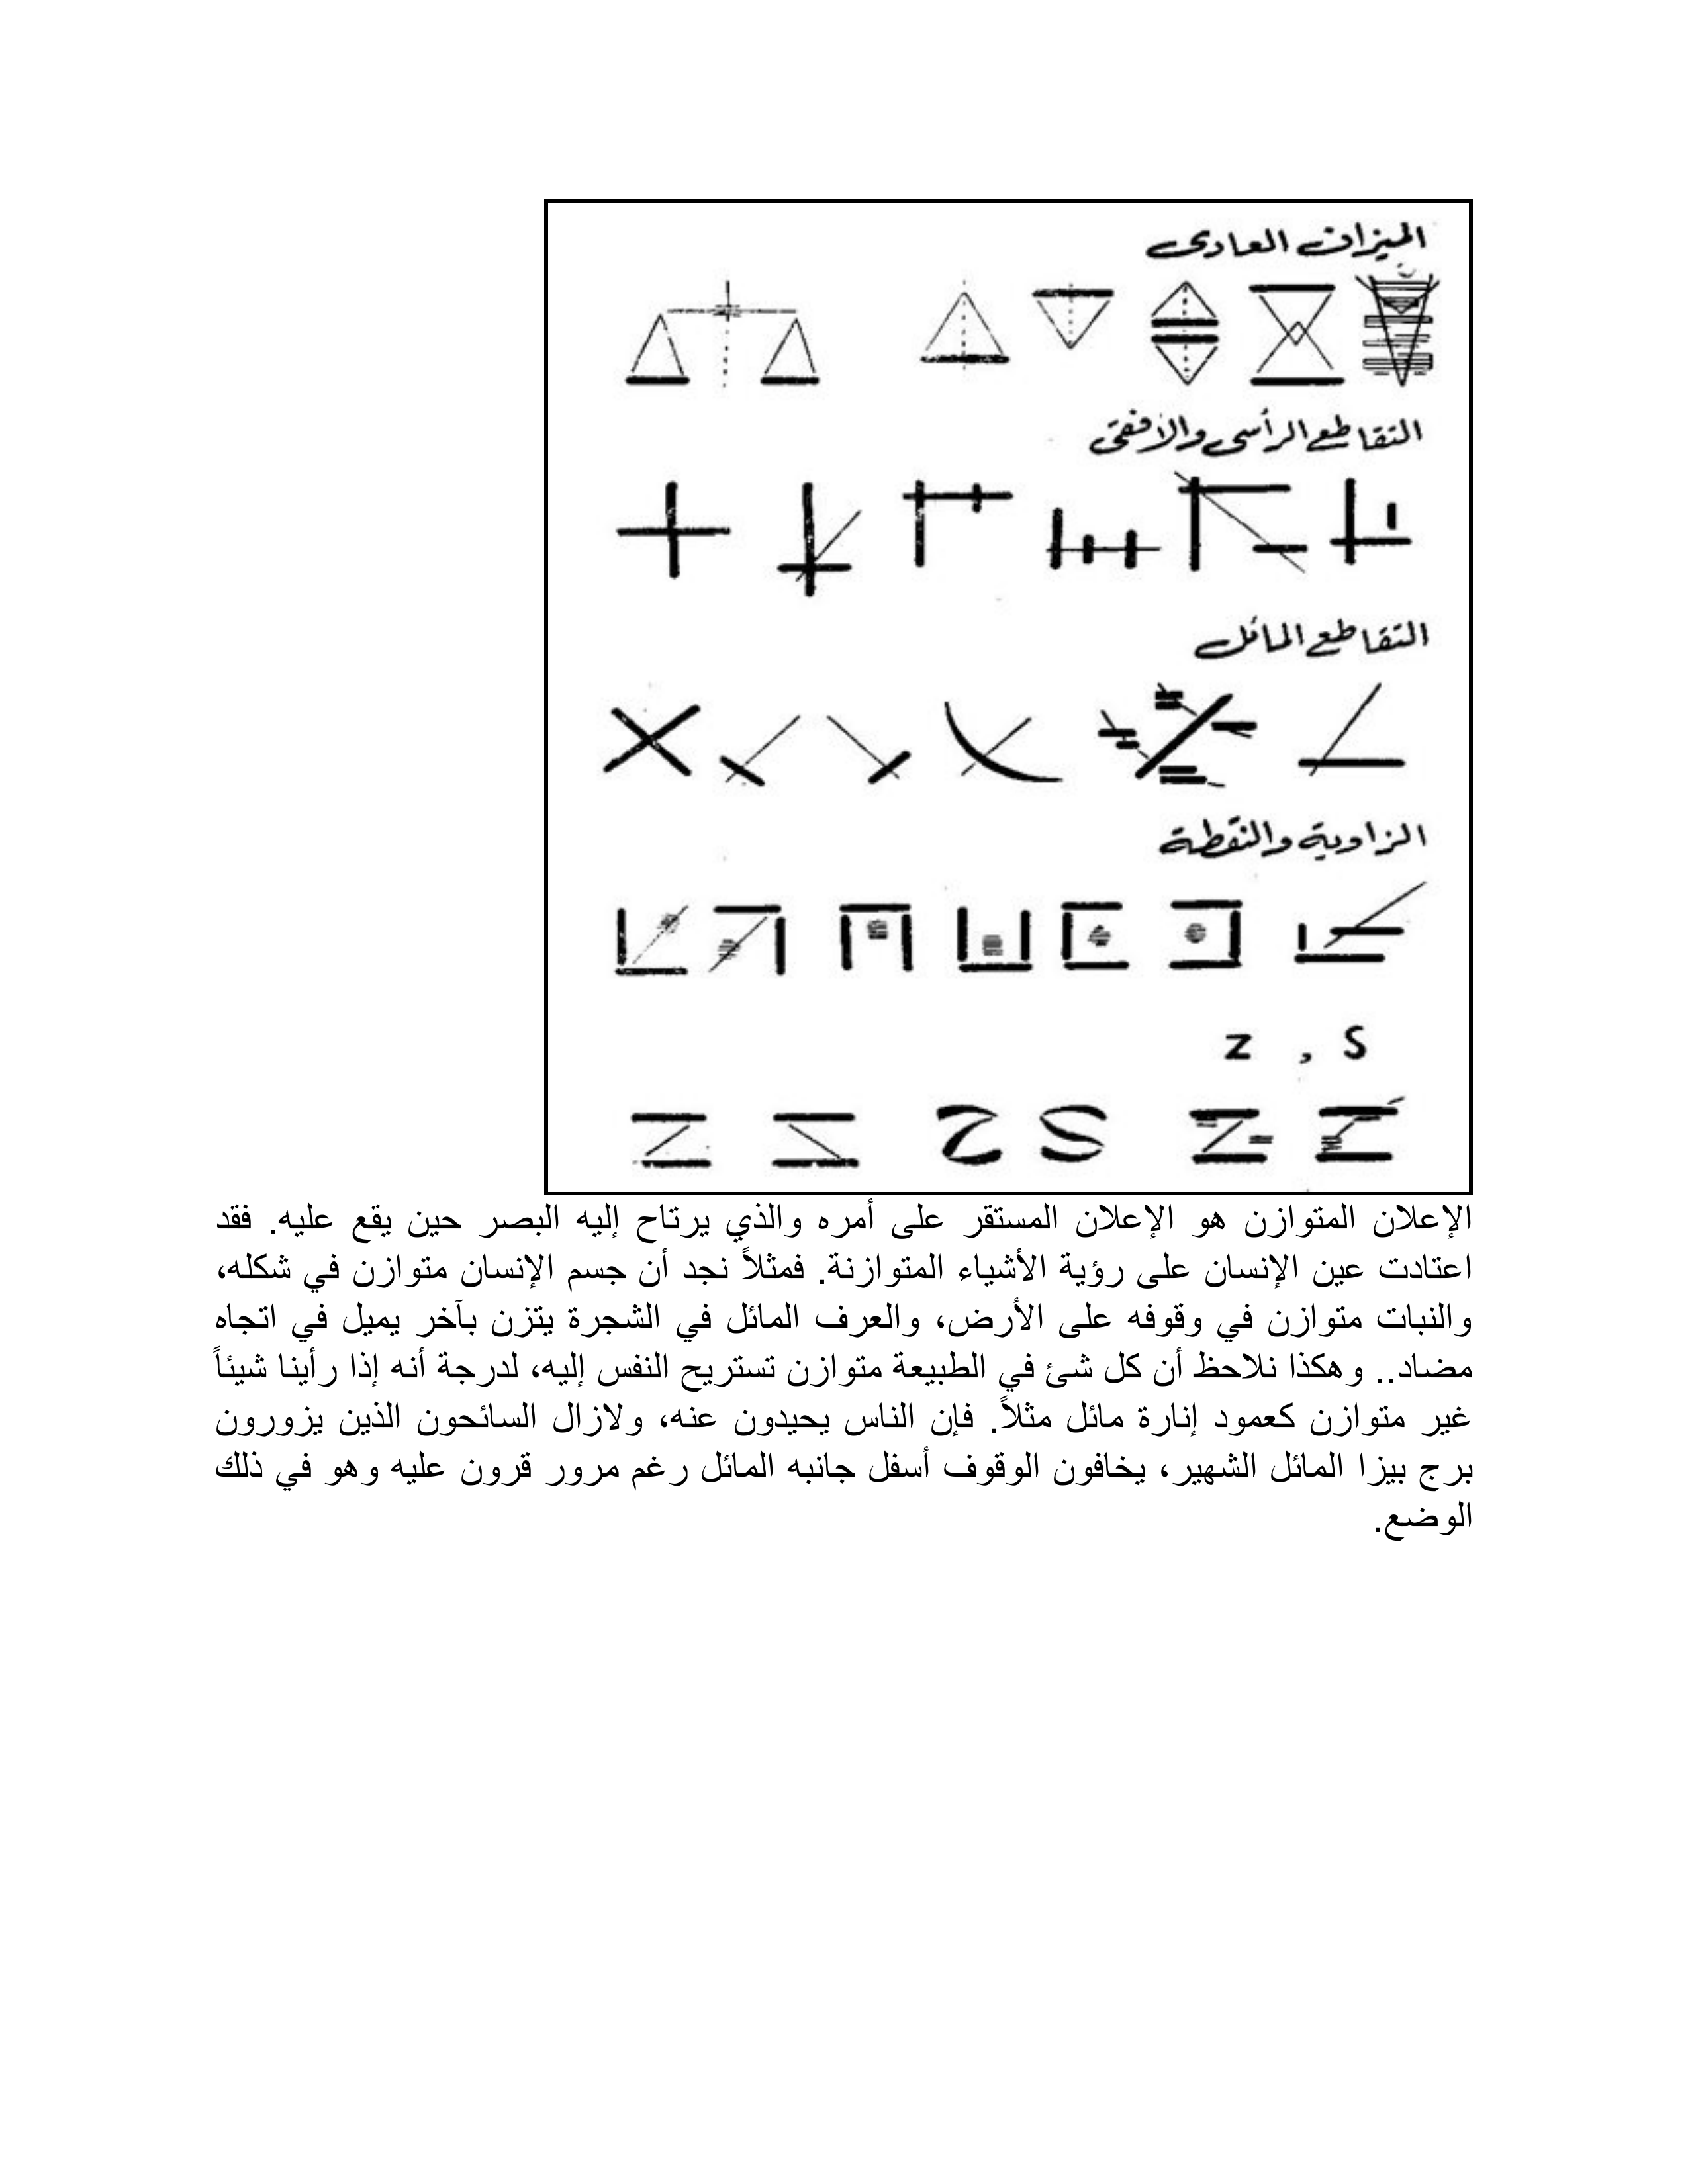 الميزان العادى
التقاطع الرأسى والأفقى
التقاطع المائل
الزاوية والنقطة
S , Z
الإعلان المتوازن هو الإعلان المستقر على أمره والذي يرتاح إليه البصر حين يقع عليه. فقد
اعتادت عين الإنسان على رؤية الأشياء المتوازنة. فمثلاً نجد أن جسم الإنسان متوازن في شكله،
والنبات متوازن في وقوفه على الأرض، والعرف المائل في الشجرة يتزن بآخر يميل في اتجاه
مضاد.. وهكذا نلاحظ أن كل شئ في الطبيعة متوازن تستريح النفس إليه، لدرجة أنه إذا رأينا شيئاً
غير متوازن كعمود إنارة مائل مثلاً. فإن الناس يحيدون عنه، ولازال السائحون الذين يزورون
برج بيزا المائل الشهير، يخافون الوقوف أسفل جانبه المائل رغم مرور قرون عليه وهو في ذلك
الوضع.